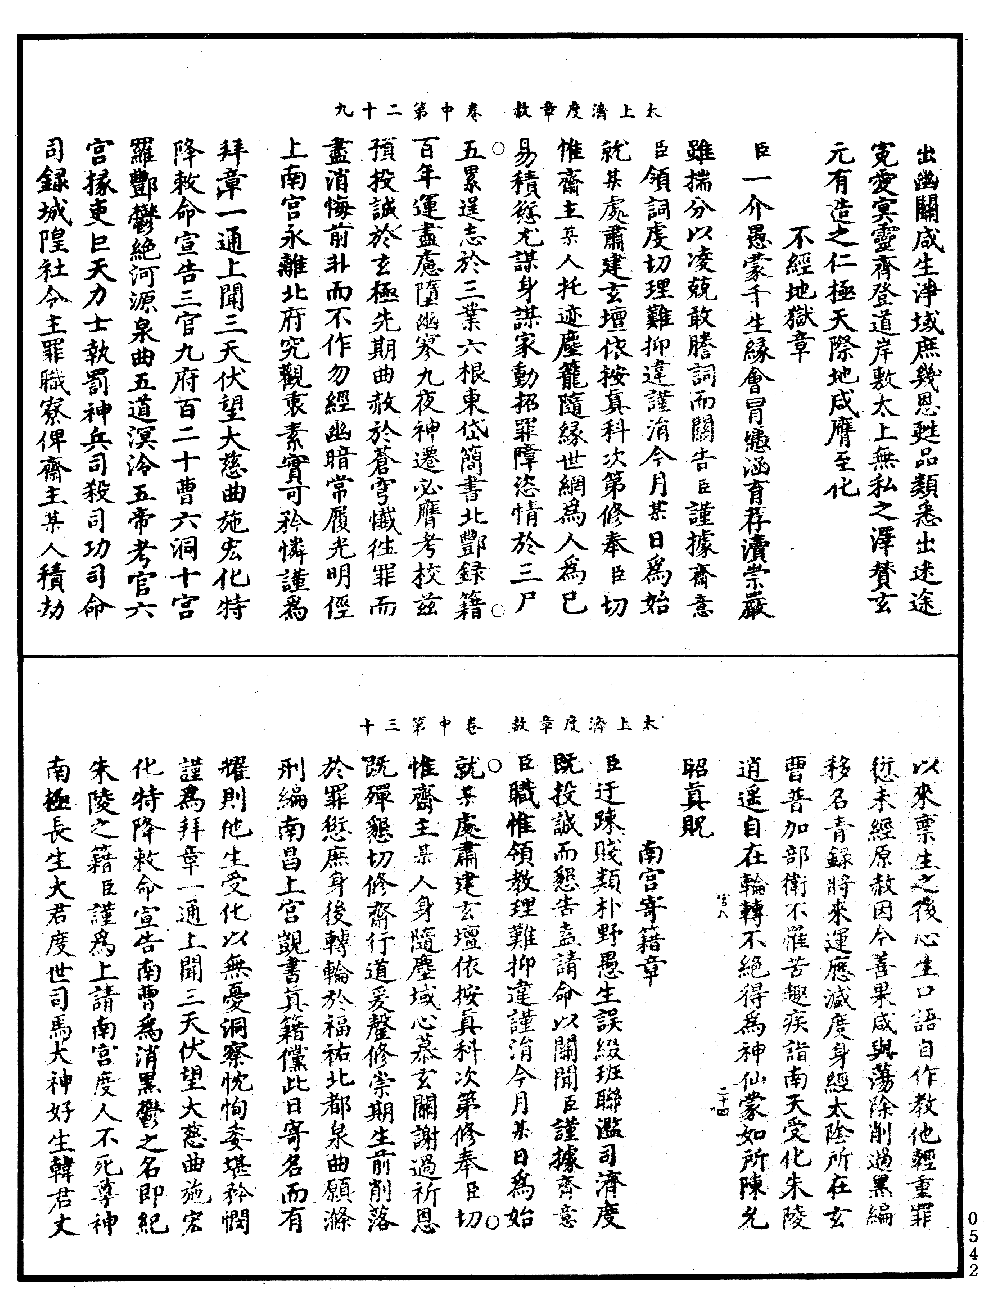 太上濟度章赦　卷中第二十九
出幽關咸生淨域庶幾恩甦品類悉出迷途
寃愛冥靈齊登道岸敷太上無私之澤賛玄
元有造之仁極天際地咸膺至化
不經地獄章
臣一介愚蒙千生緣會冒恩涵育荐瀆崇嚴
雖揣分以凌兢敢謄詞而關告臣謹據齋意
臣領詞虔切理難抑違謹涓今月某日爲始
就某處肅建玄壇依按眞科次第修奉臣切
惟齋主某人托迹塵籠隨緣世網為人為己
易積愆尤謀身謀家動招罪障恣情於三尸
五累逞志於三業六根東岱簡書北酆録籍
百年運盡慮墮幽寥九夜神遷必膺考校兹
預投誠於玄極先期曲赦於蒼穹懺徃罪而
盡消悔前非而不作勿經幽暗常履光明俓
上南宮永離北府究觀衷素實可矜憐謹爲
拜章一通上聞三天伏望大慈曲施宏化特
降敕命宣告三官九府百二十曹六洞十宮
羅酆鬱絶河源泉曲五道溟泠五帝考官六
宮掾吏巨天力士執罰神兵司殺司功司命
司録城隍社令主罪職寮俾齋主某人積劫
太上濟度章赦　卷中第三十
以來禀生之後心生口語自作教他輕重罪
愆未經原赦因今善果咸與蕩除削過黑編
移名青録將來運應滅度身經太陰所在玄
曹普加部衛不罹苦趣疾詣南天受化朱陵
逍遥自在輪轉不絶得爲神仙蒙如所陳允
昭眞貺
二十四
南宮寄籍章
臣迂踈賤類朴野愚生誤綴班聯濫司濟度
既投誠而懇告盍請命以關聞臣謹據齊意
臣職惟領教理難抑違謹涓今月某日爲始
就某處肅建玄壇依按眞科次第修奉臣切
惟齋主某人身隨塵域心慕玄關謝過祈恩
既殫懇切修齋行道爰罄修崇期生前削落
於罪愆庶身後轉輪於福祐北都泉曲願滌
刑編南昌上宮覬書眞籍儻此日寄名而有
耀則他生受化以無憂洞察忱恂委堪矜憫
謹爲拜章一通上聞三天伏望大慈曲施宏
化特降敕命宣告南曹爲消黑鬱之名即紀
朱陵之籍臣謹爲上請南宮度人不死尊神
南極長生大君度世司馬大神好生韓君丈
0542